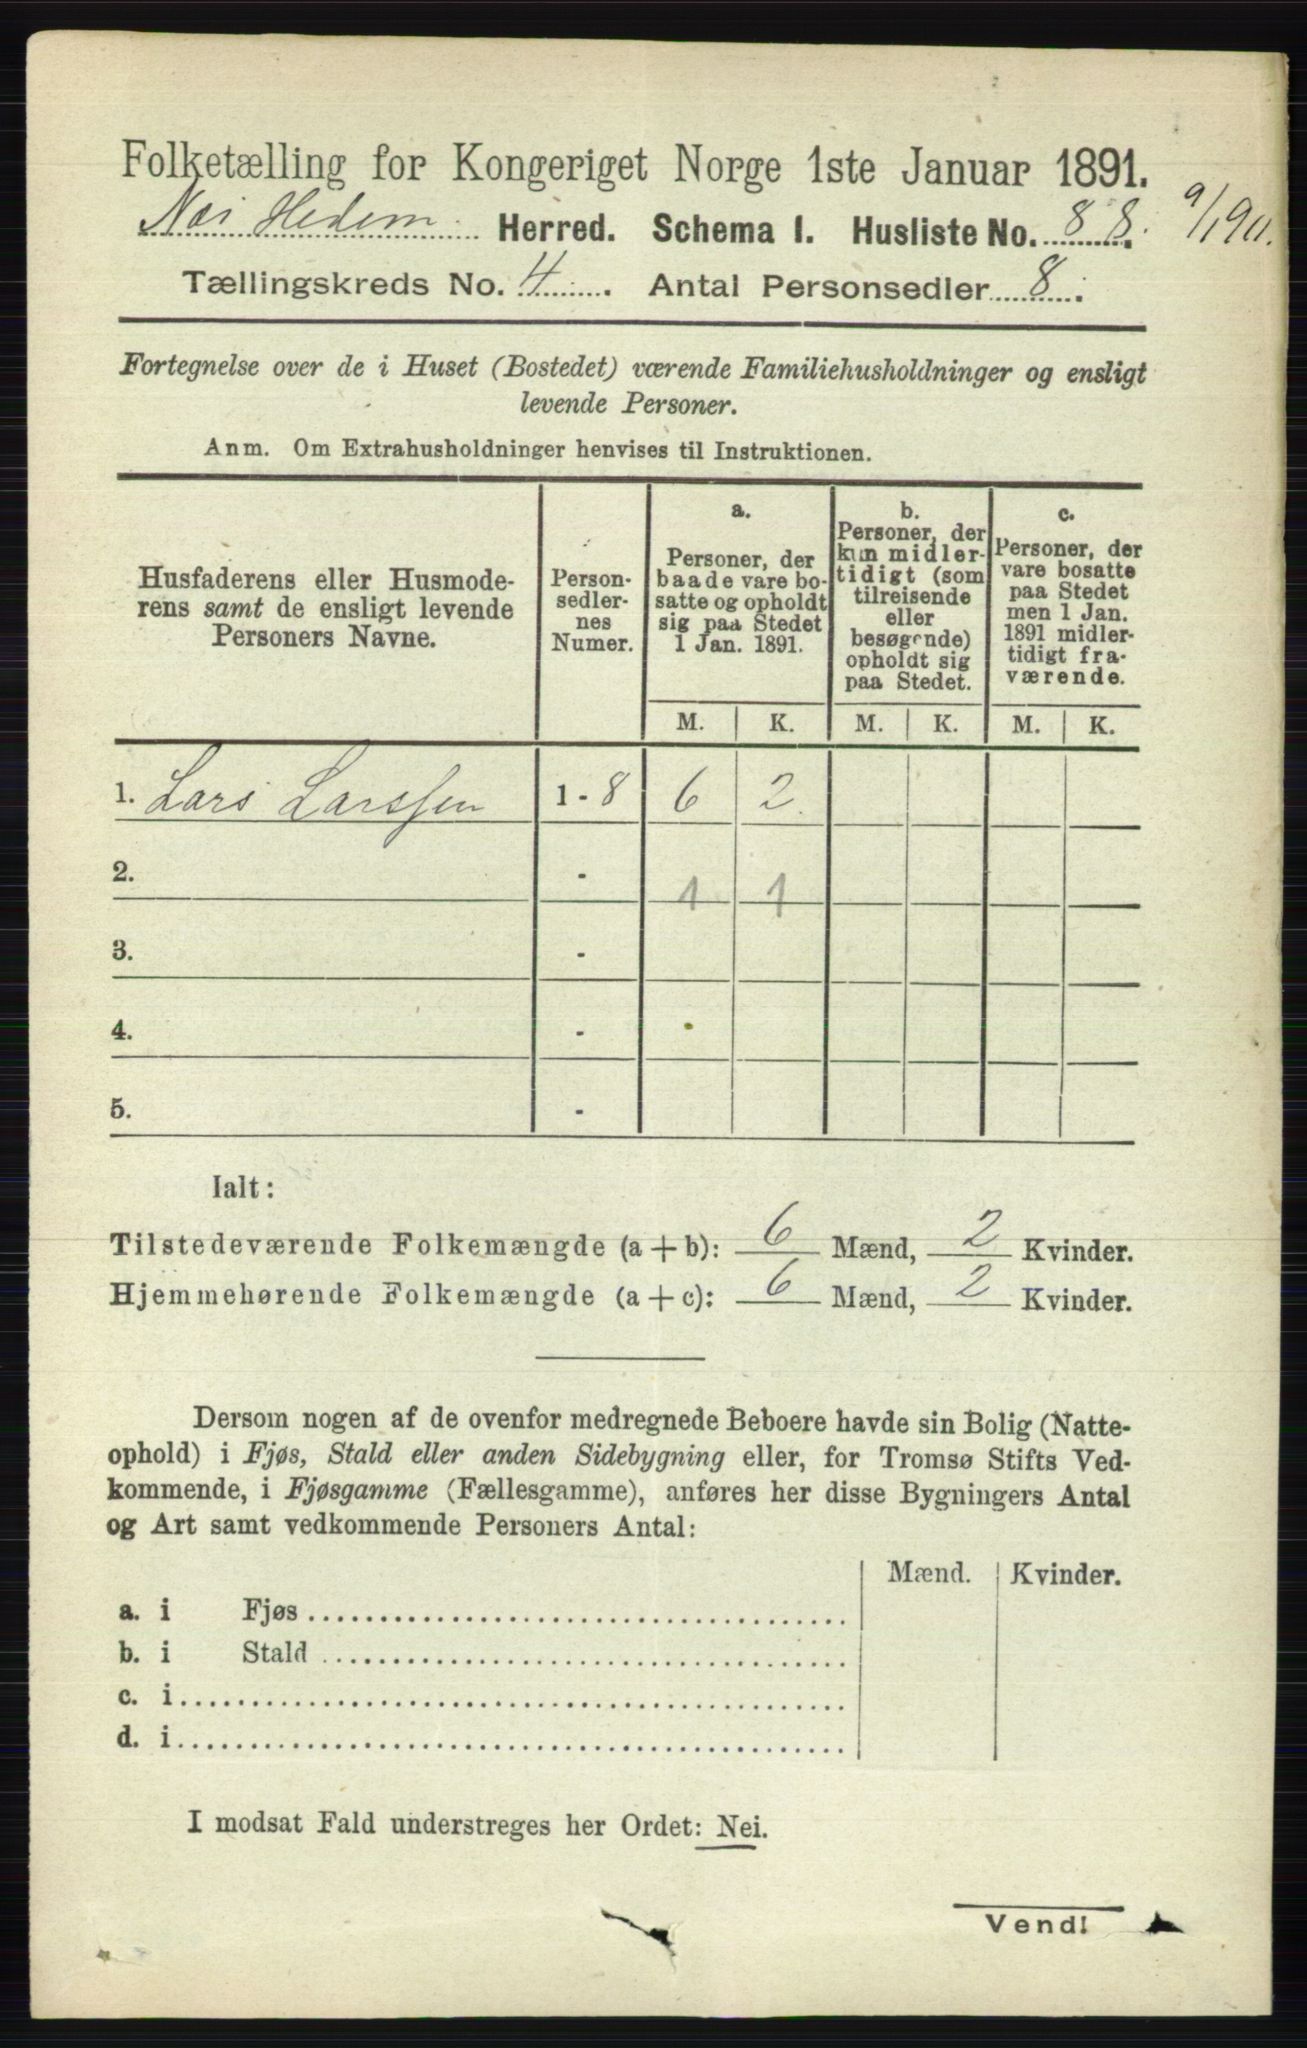 Folketælling for Kongeriget Norge 1ste Januar 1891.
Nes Hedem. Herred. Schema I. Husliste No. 88.
Tællingskreds No. 4. Antal Personsedler 8.
Fortegnelse over de i Huset (Bostedet) værende Familiehusholdninger og ensligt
levende Personer.
Anm. Om Extrahusholdninger henvises til Instruktionen.
Husfaderens eller Husmode-
rens samt de ensligt levende
Personers Navne.
Person-
sedler-
nes
Numer.
a.
Personer, der
baade vare bo-
satte og opholdt
sig paa Stedet
1 Jan. 1891.
b.
Personer, der
kun midler-
tidigt (som
tilreisende
eller
besøgende)
opholdt sig
paa Stedet.
c.
Personer, der
vare bosatte
paa Stedet
men 1 Jan.
1891 midler-
tidigt fra-
værende.
M. K. M. K. M. K.
1. Lars Larssen 1 - 8 6 2
2. - 1 1
3. -
4. -
5. -
Ialt:
Tilstedeværende Folkemængde (a + b): 6 Mænd, 2 Kvinder.
Hjemmehørende Folkemængde (a + c): 6 Mænd, 2 Kvinder.
Dersom nogen af de ovenfor medregnede Beboere havde sin Bolig (Natte-
ophold) i Fjøs, Stald eller anden Sidebygning eller, for Tromsø Stifts Ved-
kommende, i Fjøsgamme (Fællesgamme), anføres her disse Bygningers Antal
og Art samt vedkommende Personers Antal:
Mænd. Kvinder.
a. i Fjøs
b. i Stald
c. i
d. i
I modsat Fald understreges her Ordet: Nei.
Vend!